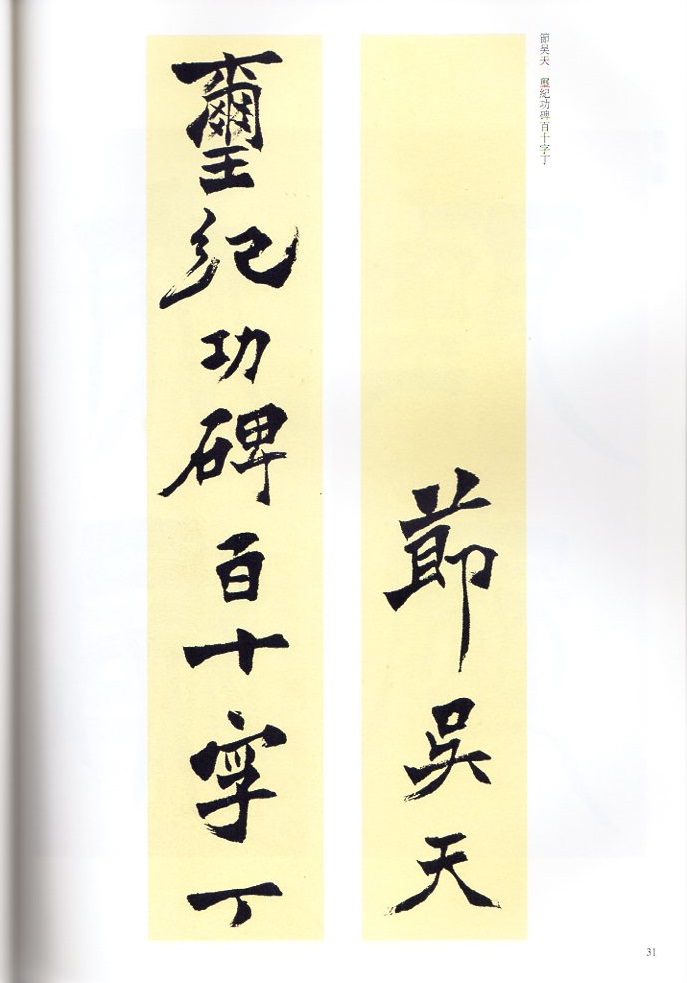 節吴天 璽紀功碑百十字丁
節吳天
璽紀功碑百十字丁
31